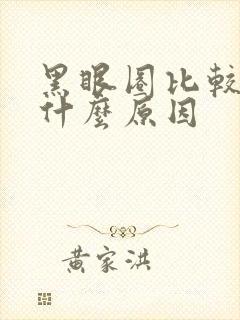 黑眼圈比較
什麼原因
黄家洪